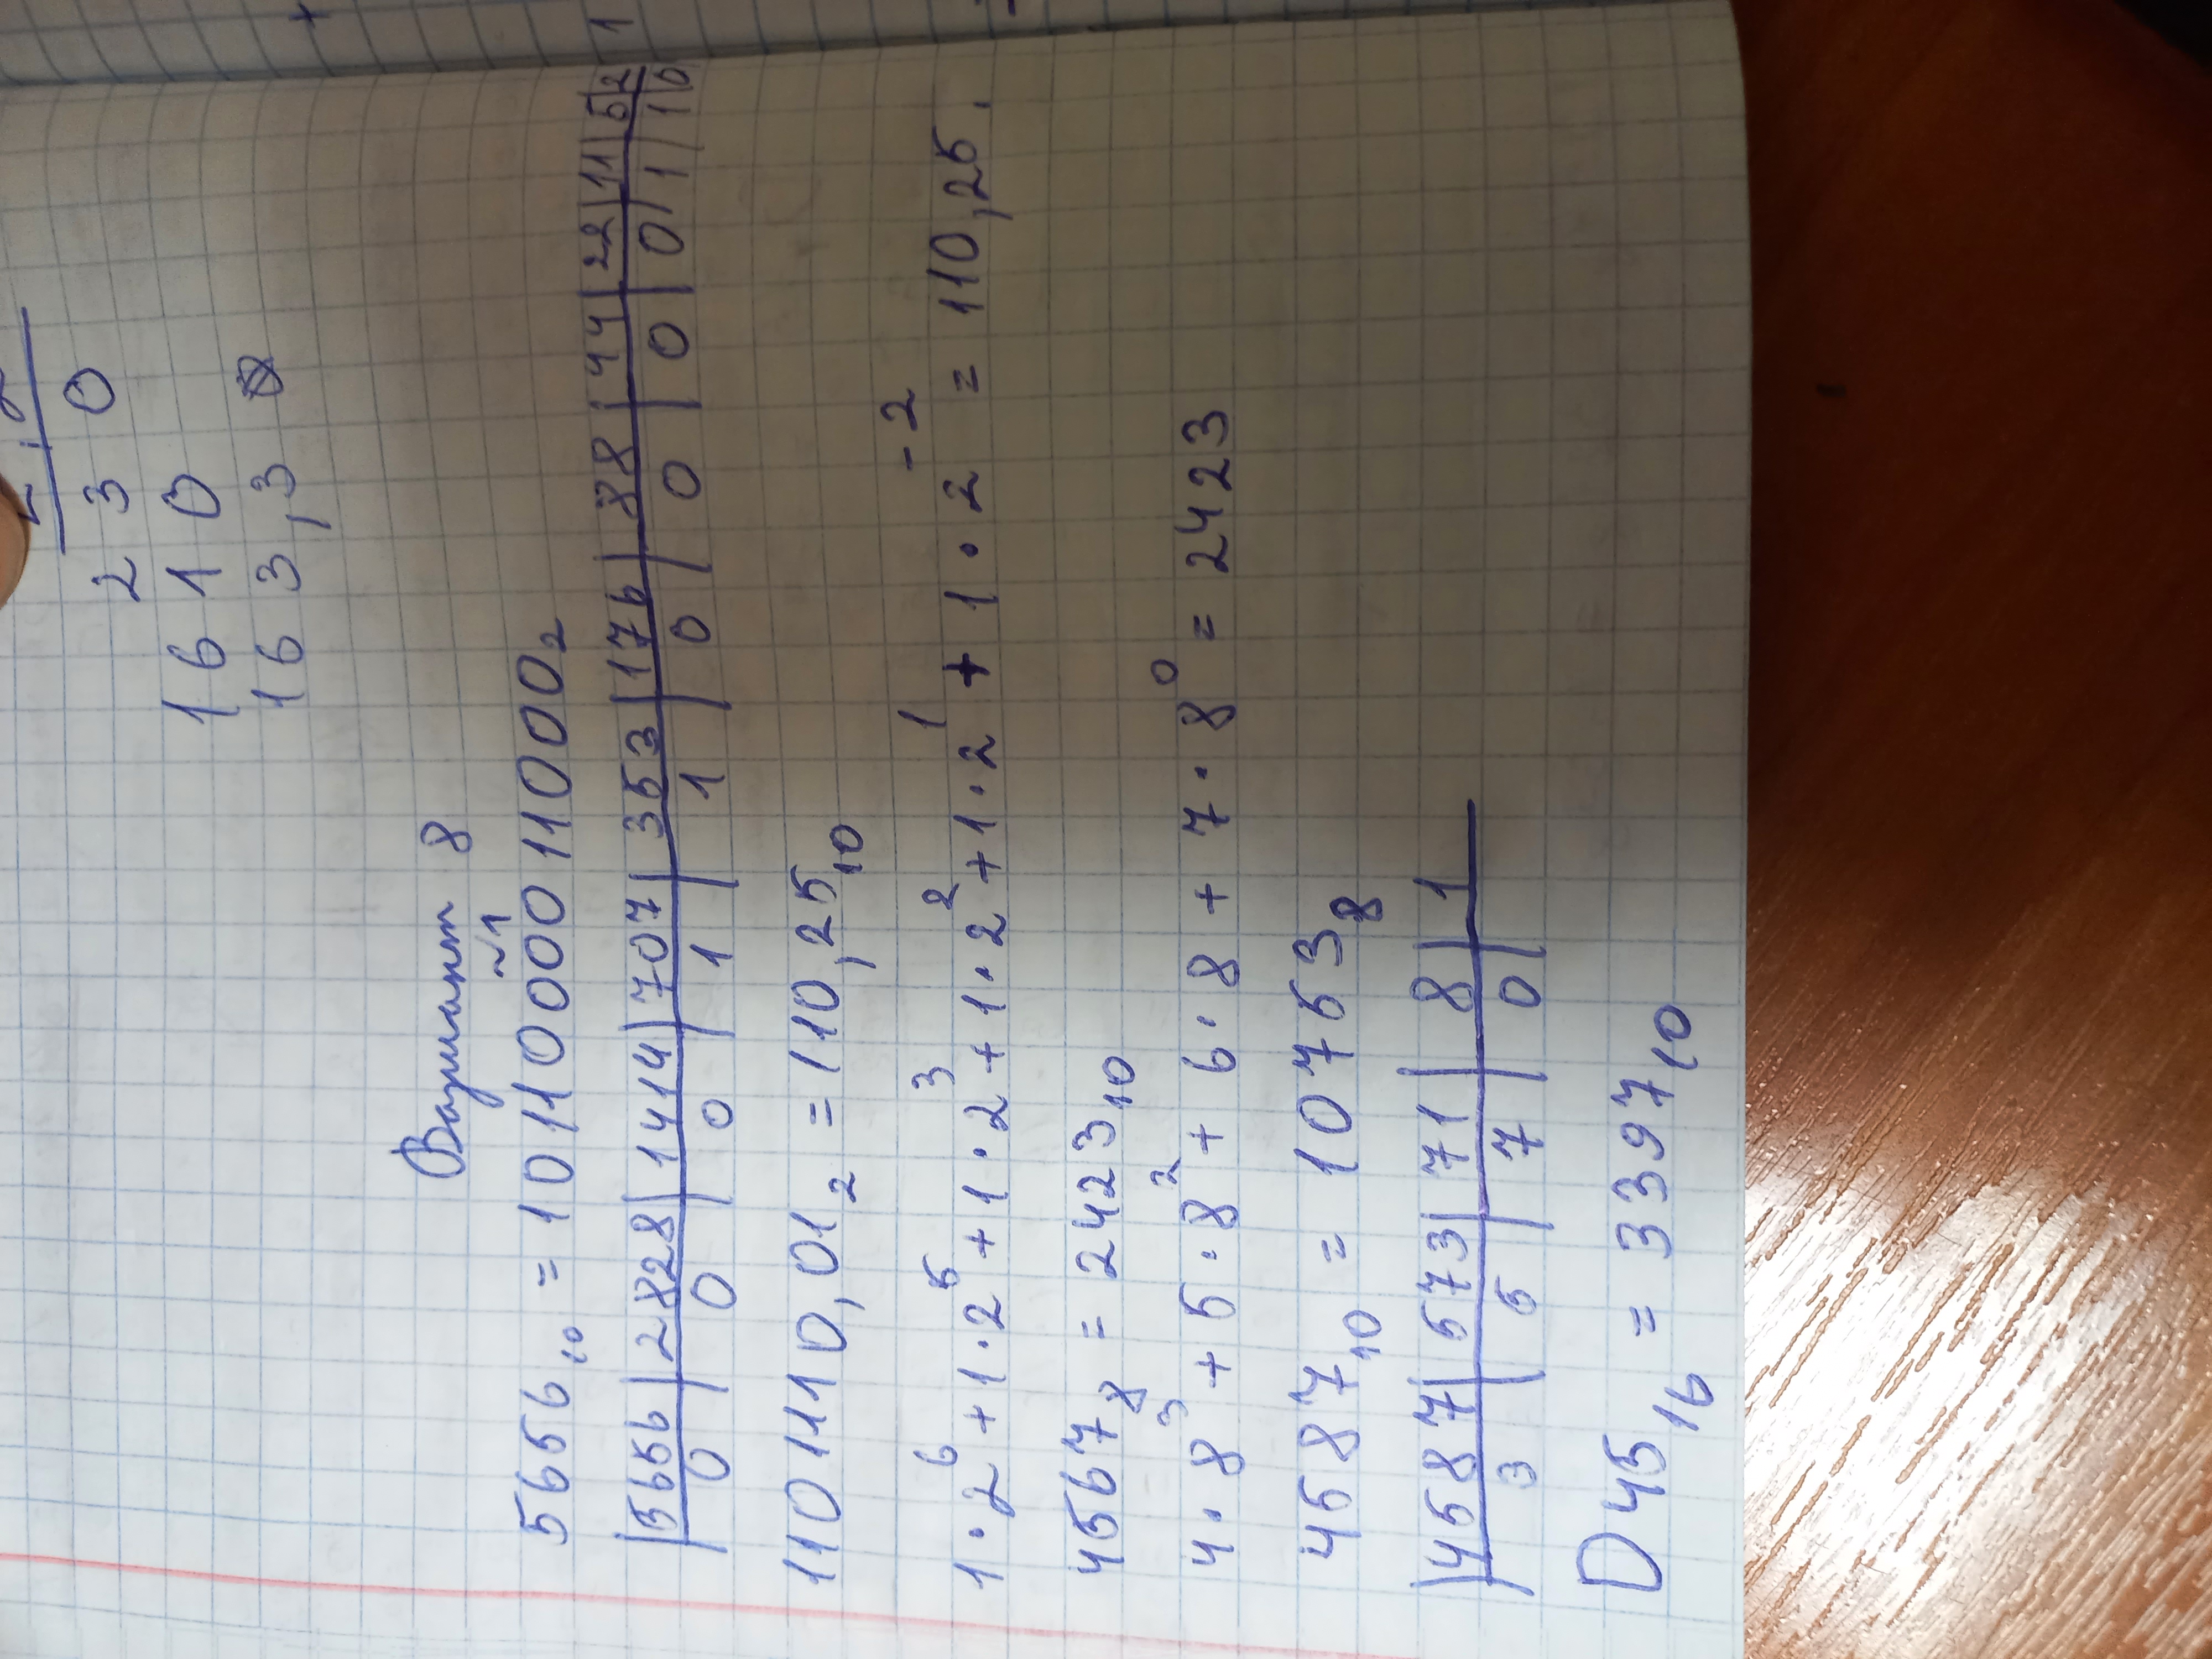 2,2
230
1610
163,30
Вариант 8
~1
5656₁₀ = 1011000011000₂
|5656|2828|1414|707|353|176|88|44|22|11|5|2|1
|0|0|0|1|1|0|0|0|0|1|1|0
1101110,01₂ = 110,25₁₀
1·2⁶+1·2⁵+1·2³+1·2²+1·2¹+1·2⁻²=110,25.
4567₈ = 2423₁₀
4·8³+5·8²+6·8+7·8⁰=2423
4587₁₀ = 10753₈
|4587|573|71|8|1
|3|5|7|0|
D45₁₆ = 3397₁₀